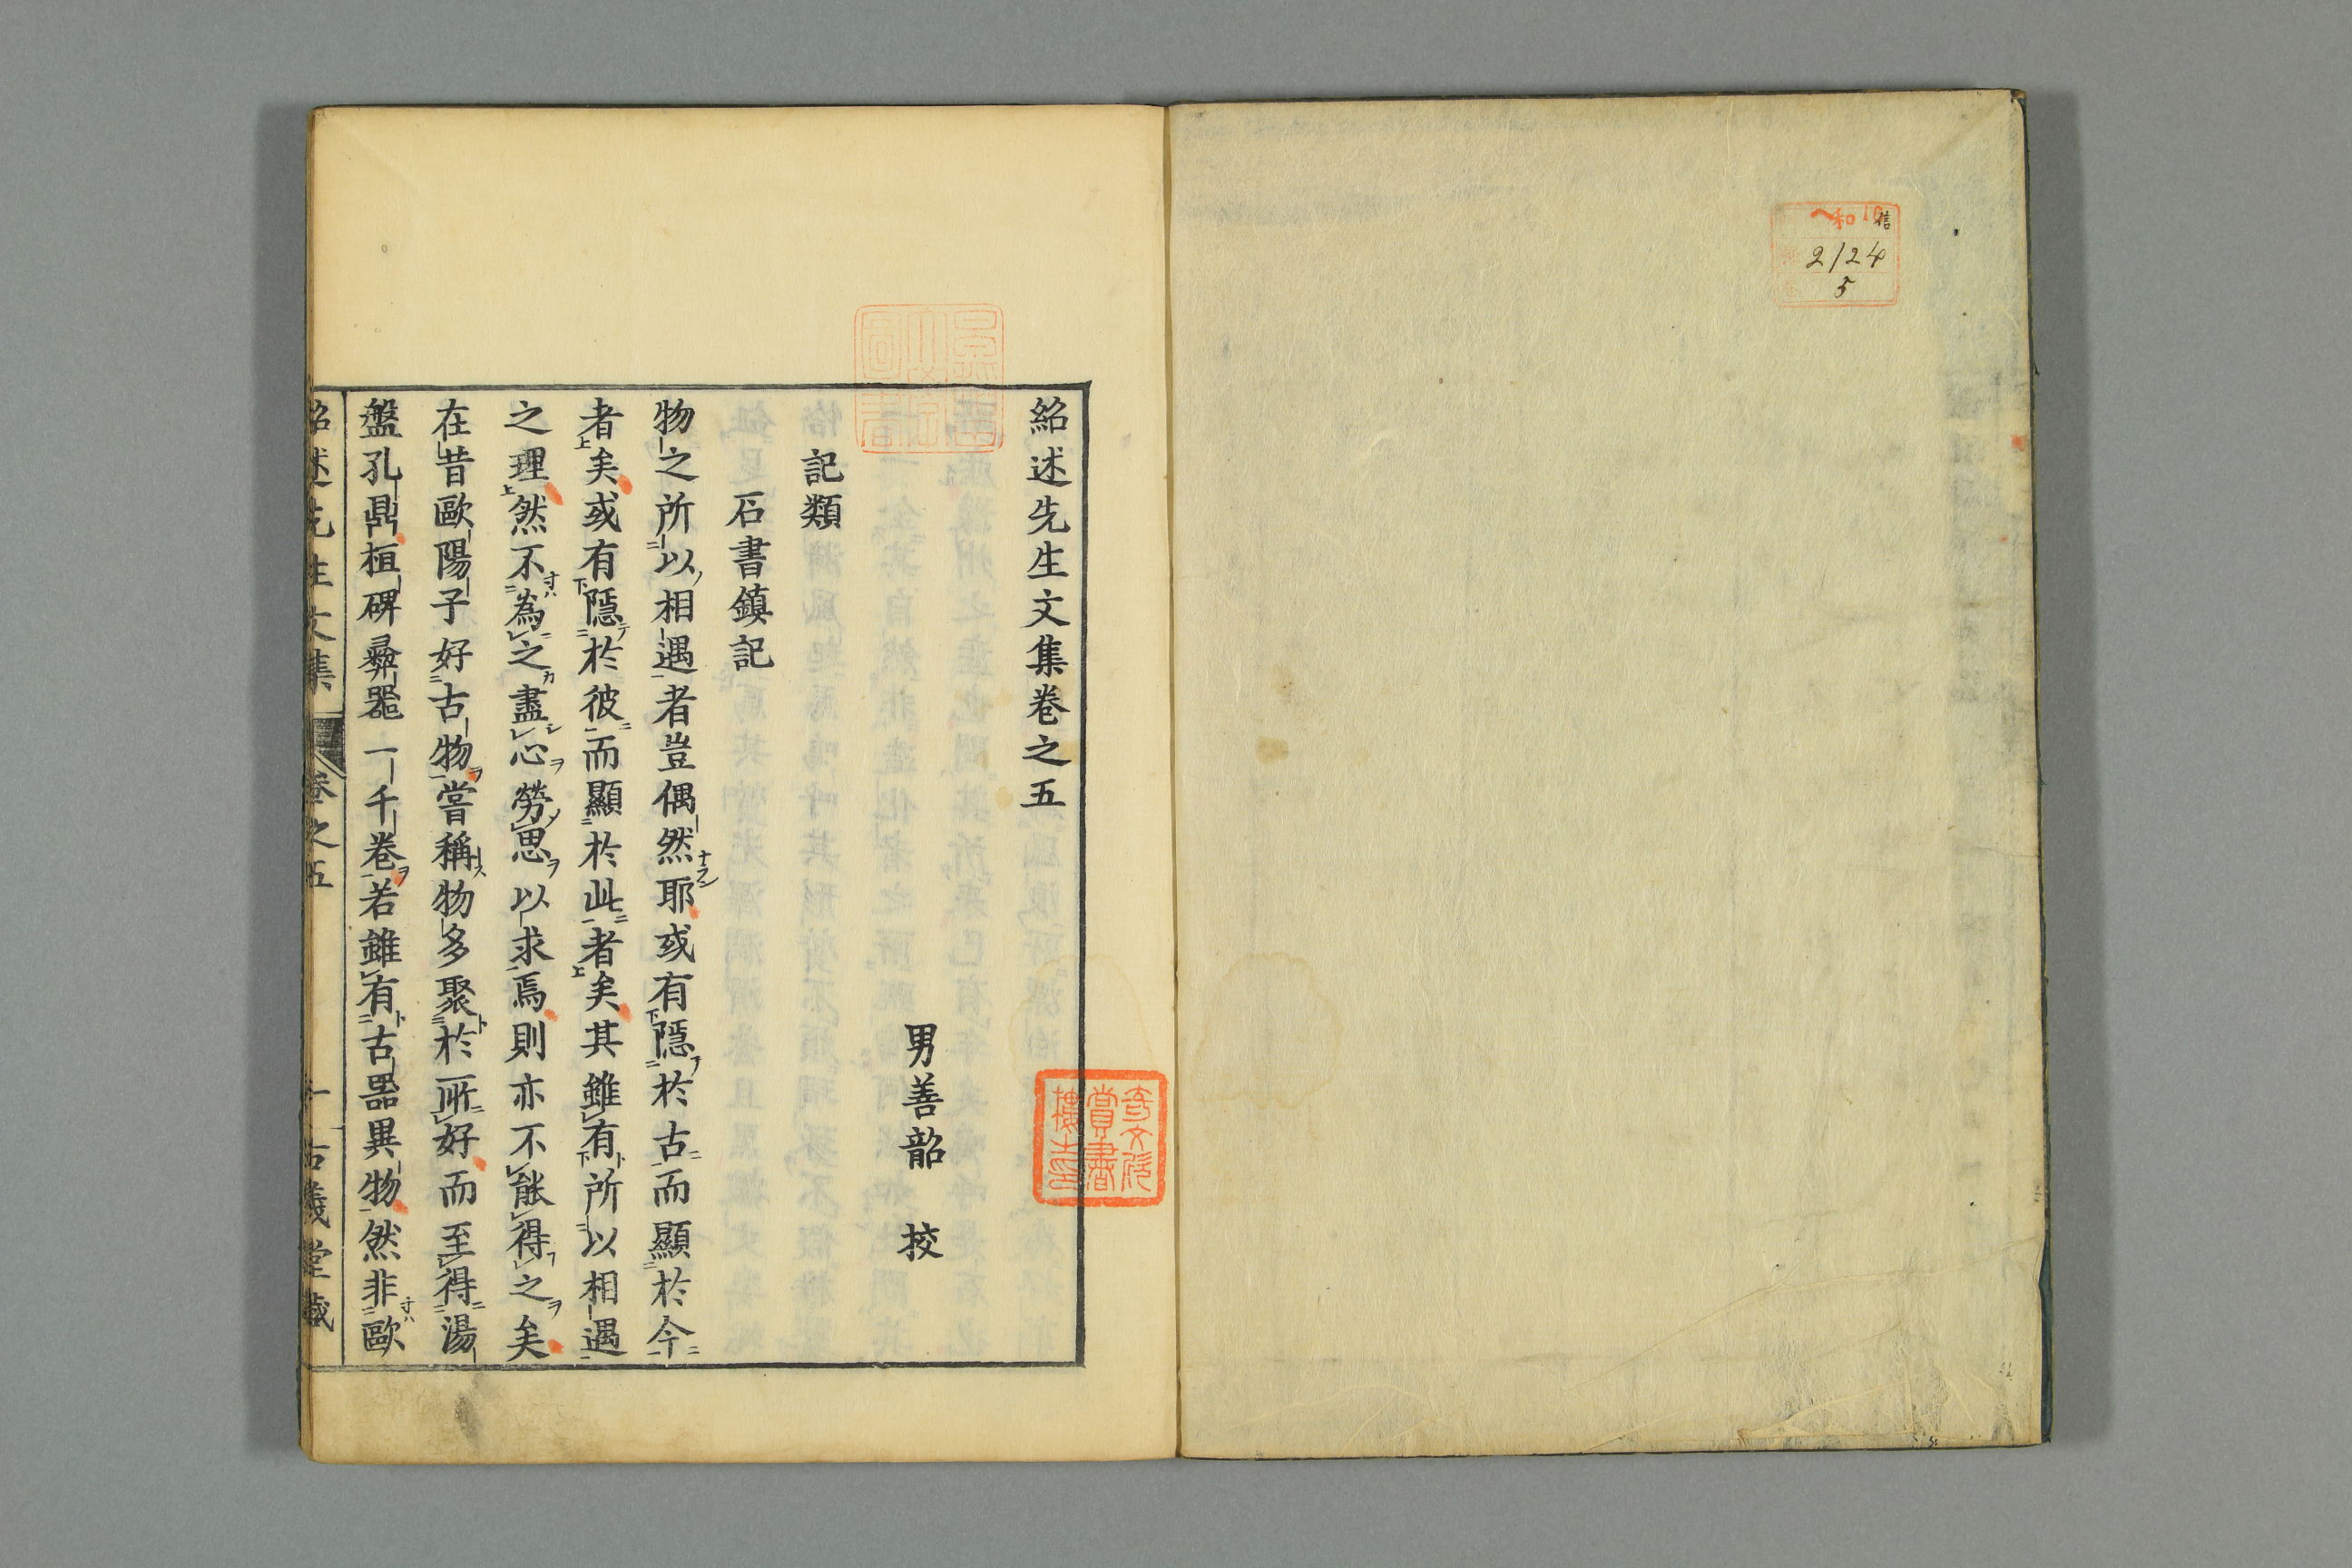 和
信
2124
5
紹述先生文集卷之五
男善韶　挍
記類
石書鎮記
物之所以相遇者豈偶然耶或有隱於古而顯於今
者矣或有隱於彼而顯於此者矣其雖有所以相遇
之理然不為之盡心勞思以求焉則亦不能得之矣
在昔歐陽子好古物嘗稱物多聚於所好而至得湯
盤孔鼎桓碑彜器一千卷若雖有古器異物然非歐
紹述先生文集
卷之五
一
古義堂藏